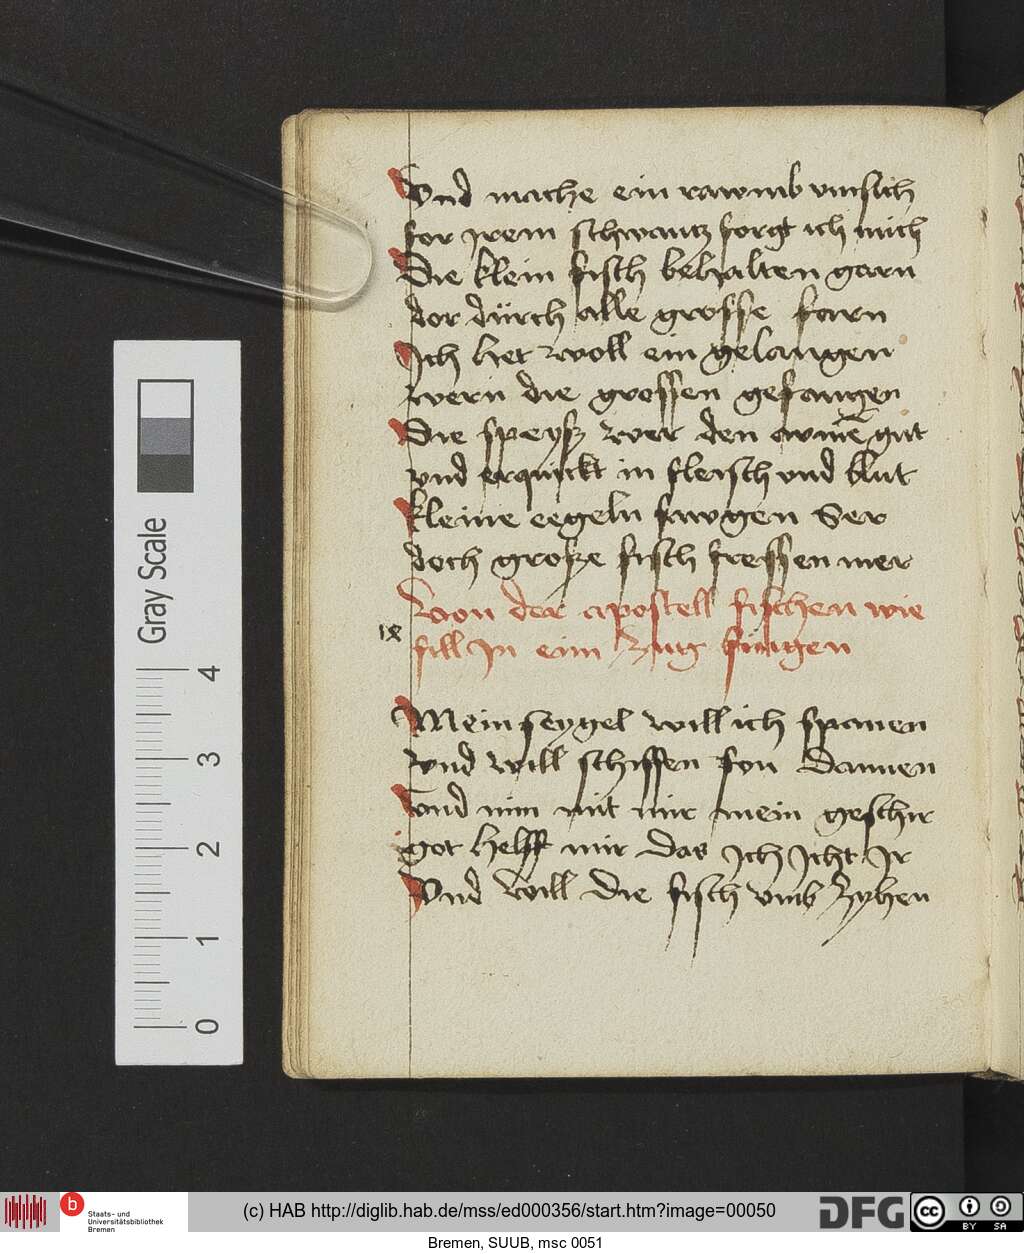 Vnd mache ein rawmb vmsich
for jrem schwantz sorgt ich mich
Die klein fisch behalten garn
dor dürch alle grosse farn
Ich het woll ein gelangen
wern die grossen gefangen
Die speysz wer den armē gut
vnd erquickt in fleisch vnd blut
kleine eegeln sawgen Ser
doch große fisch fressen mer
Von der apostell fischen wie
fill In eim Zug fingen
ix
Mein seygel will ich spanen
vnd will schiffen fon dannen
vnd nim mit mir mein geschir
got helff mir das Ich Icht Ir
Vnd will die fisch vmb Zyhen
Gray Scale
4
3
2
1
0
b
Staats- und
Universitätsbibliothek
Bremen
(c) HAB http://diglib.hab.de/mss/ed000356/start.htm?image=00050
DFG
cc
BY SA
Bremen, SUUB, msc 0051